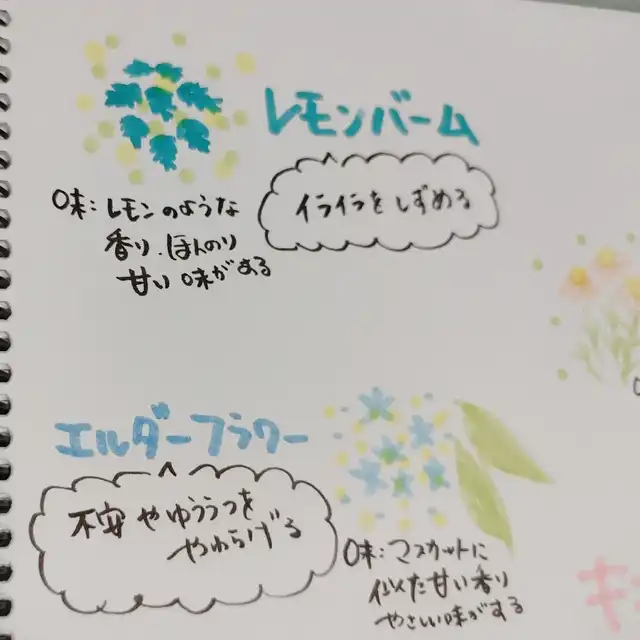 レモンバーム
イライラをしずめる
味:レモンのような
香り.ほんのり
甘い味がする
エルダーフラワー
不安やゆううつを
やわらげる
味:マスカットに
似た甘い香り
やさしい味がする